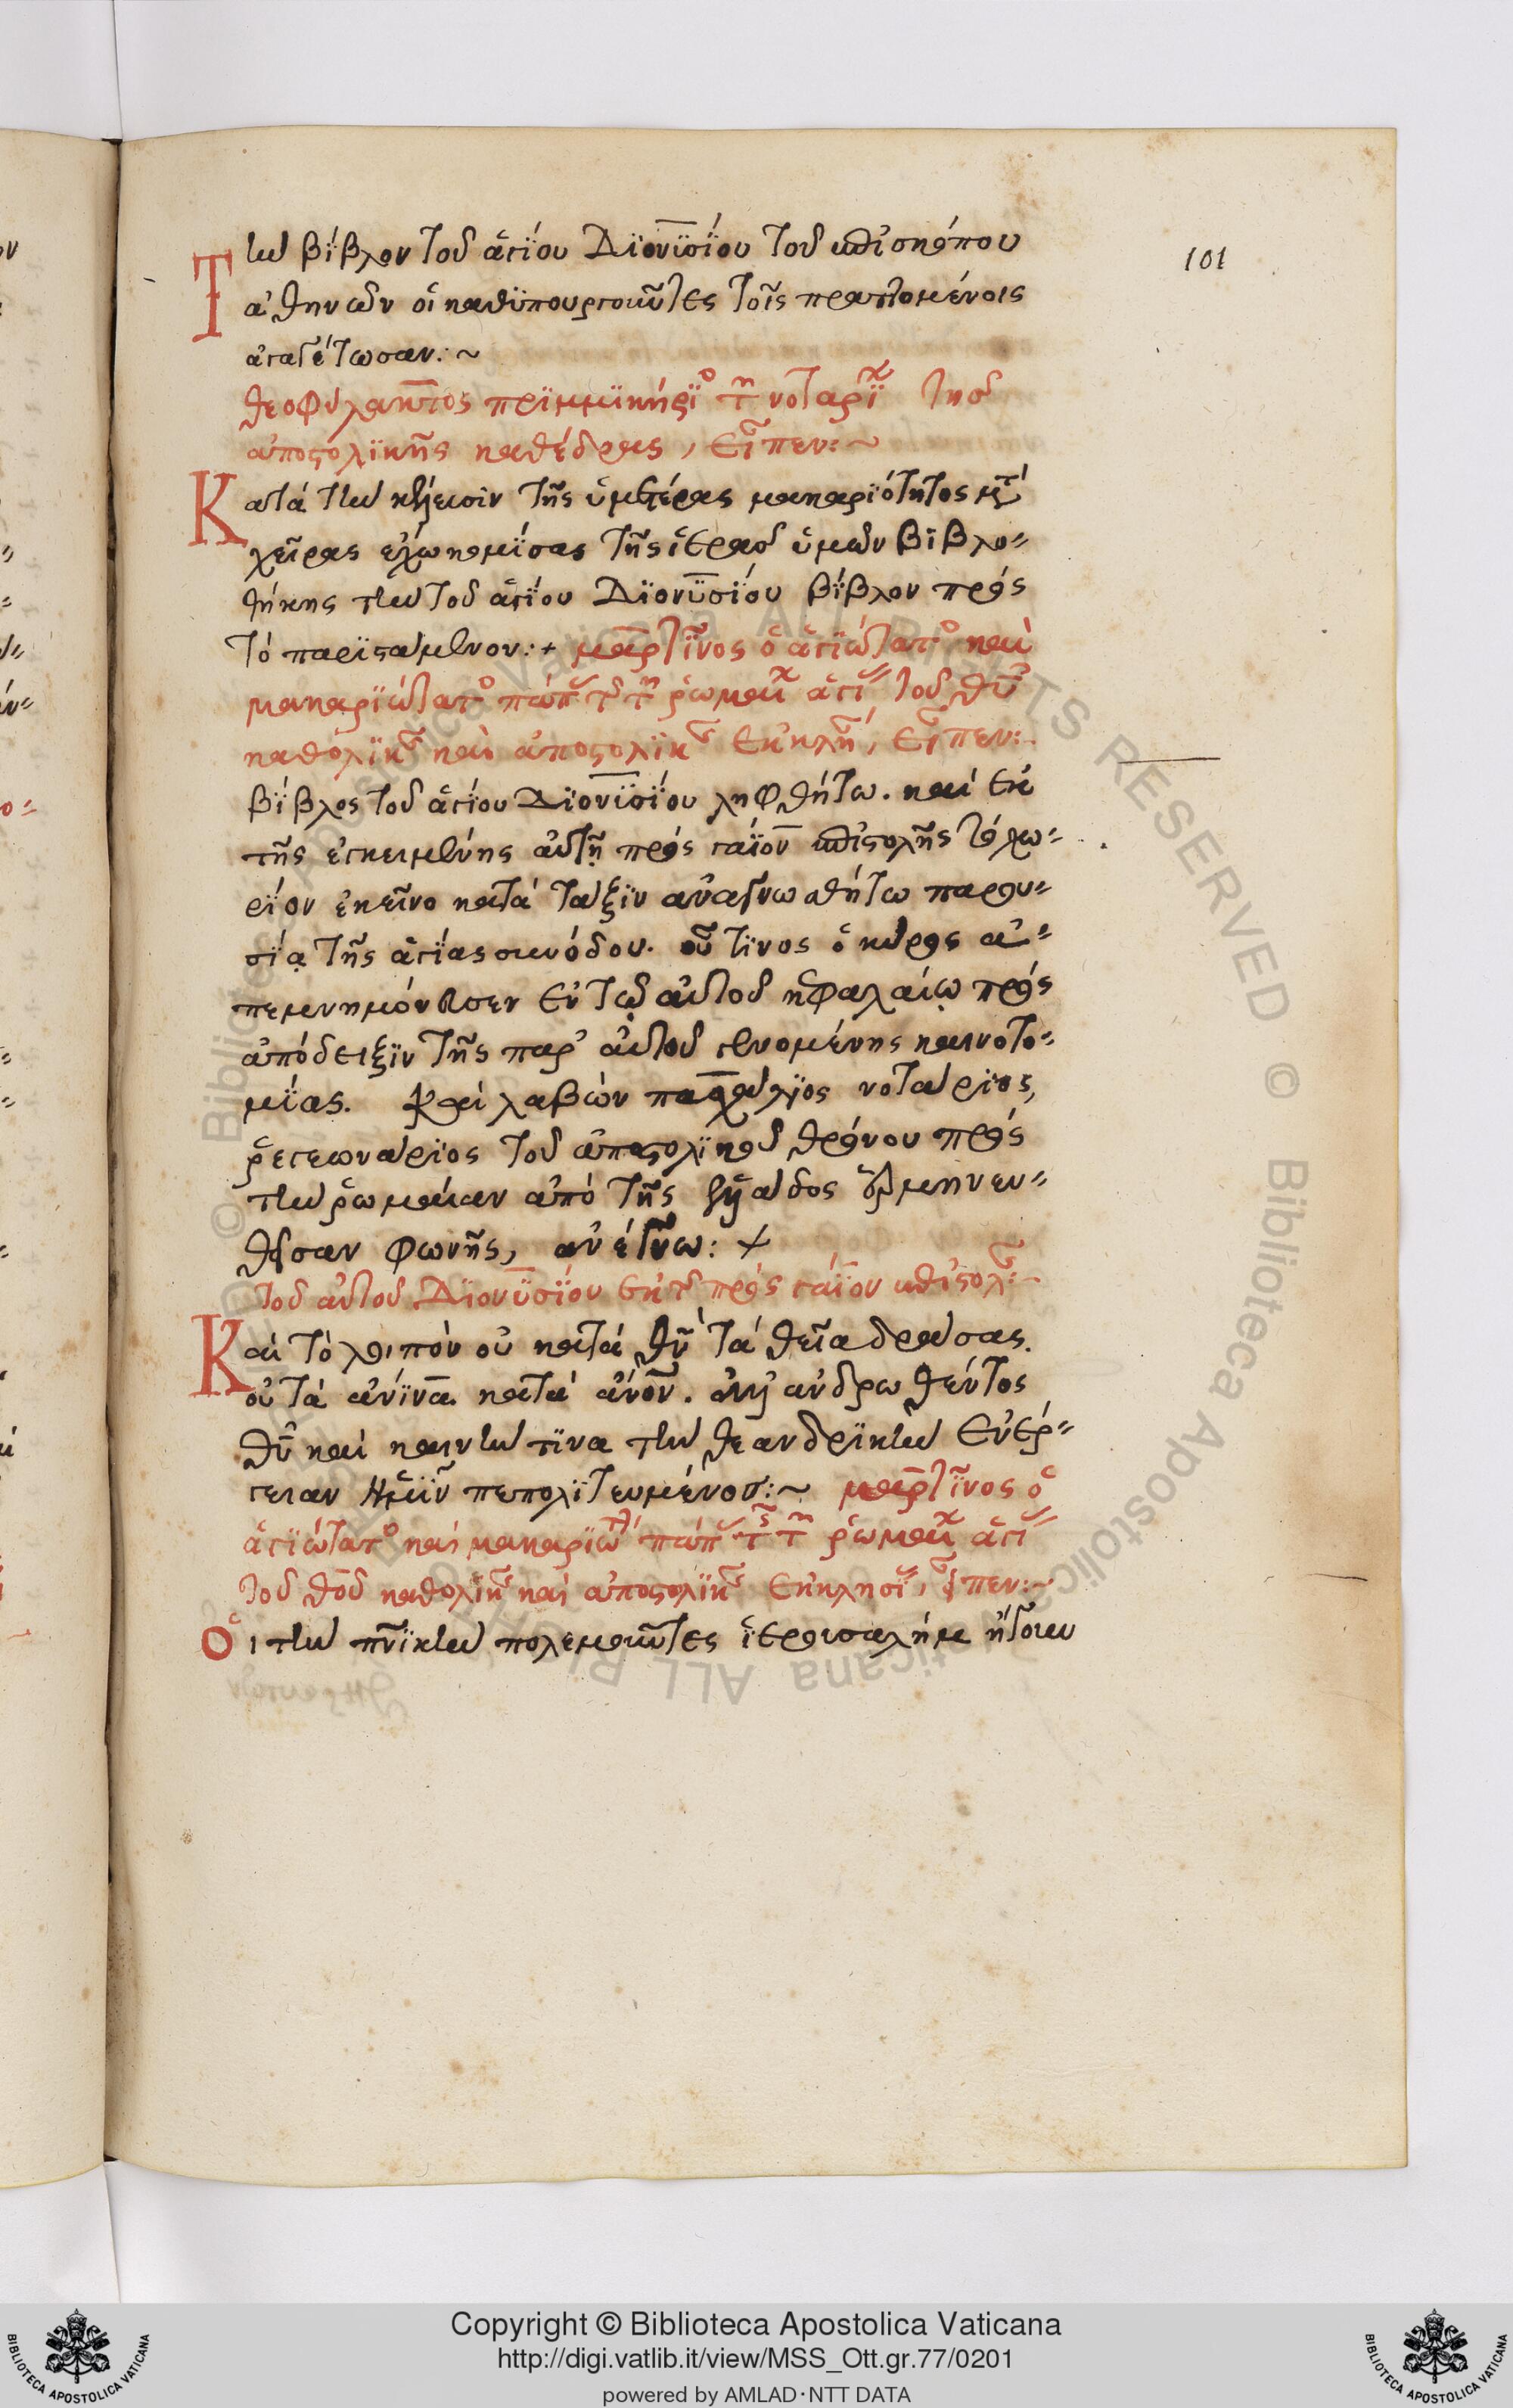 Τὴν βίβλον τοῦ ἁγίου Διονυσίου τοῦ ἐπισκόπου
ἀθηνῶν οἱ καθυπουργοῦντες τοῖς πραττομένοις
ἀγαγέτωσαν:~
θεοφύλακτος πριμμικήριο τῶν νοταρί τῆσ
ἀποστολικῆς καθέδρας, εἶπεν:~
Κατὰ τὴν κέλευσιν τῆς ὑμετέρας μακαριότητος μετὰ
χεῖρας ἔχω κομίσας τῆς ἱερασ ὑμῶν βιβλο=
θήκης τὴν τοῦ ἁγίου Διονυσίου βίβλον πρὸς
τὸ παριστάμενον:+ μαρτῖνος ὁ ἁγιώτατο καὶ
μακαριώτατο πάπ τῆς τῶν ῥωμαί ἁγί τοῦ θῦ
καθολικ καὶ ἀποστολικ ἐκκλη, εἶπεν:
βίβλος τοῦ ἁγίου Διονυσίου ληφθήτω. καὶ ἐκ
τῆς ἐγκειμένης αὐτῇ πρὸς γάϊον ἐπιστολῆς τὸ χω=
ρίον ἐκεῖνο κατὰ τάξιν ἀναγνωσθήτω παρου=
σίᾳ τῆς ἁγίας συνόδου. οὗ τινος ὁ κύρος ἀ=
πεμνημόνευσεν ἐν τῷ αὐτοῦ κεφαλαίῳ πρὸς
ἀπόδειξιν τῆς παρ' αὐτοῦ γενομένης καινοτο=
μίας. Καὶ λαβὼν πασχάλιος νοτάριος,
ῥεγεωνάριος τοῦ ἀποστολικοῦ θρόνου πρὸς
τὴν ῥωμαίαν ἀπὸ τῆς ἑλλάδος ἑρμηνευ=
θεῖσαν φωνῆς, ἀνέγνω: +
τοῦ αὐτοῦ Διονυσίου ἐκ τῆς πρὸς γάϊον ἐπιστολ:~
Καὶ τὸ λοιπὸν οὐ κατὰ θν τὰ θεῖα δράσας.
οὐ τὰ ἀνίνα κατὰ ἄνον. ἀλλ' ἀνδρωθέντος
θῦ καὶ καινὴν τινα τὴν θεανδρικὴν ἐνέρ=
γειαν ἡμῖν πεπολιτευμένοσ:~ μαρτῖνος ὁ
ἁγιώτατο καὶ μακαριώτ πάπ τῆς τῶν ῥωμαί ἁγί
τοῦ θοῦ καθολικ καὶ ἀποστολικ ἐκκλησί, εἶπεν:~
Οἱ τὴν πνικὴν πολεμοῦντες ἱερουσαλήμ ἤγουν
101
Copyright © Biblioteca Apostolica Vaticana
http://digi.vatlib.it/view/MSS_Ott.gr.77/0201
powered by AMLAD·NTT DATA